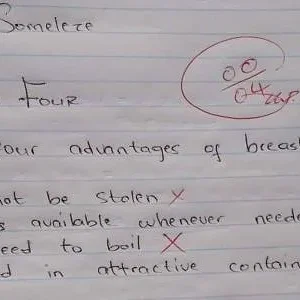 Someleze
00
04
Four
our advantages of breas
not be stolen X
s available whenever neede
eed to boil X
d in attractive contain